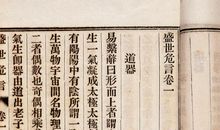 盛世危言卷一
道器
易繫辭曰形而上者謂
生一氣凝成太極太極
有陽陽中有陰所謂一
生萬物宇宙間名物理
二者偶數也奇偶相乘
氣生卽器由道出老子